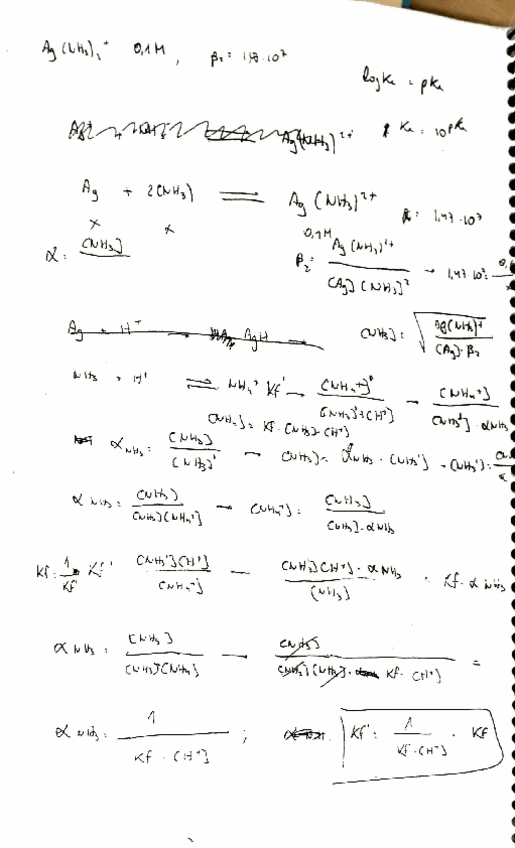 Ag(NH₃)₂⁺ 0,1M, β₂ =
log Ka = pKa
Ka = 10 pKa
Ag(NH₃)²⁺
Ag + 2(NH₃) ⇌ Ag(NH₃)²⁺ 1,47·10⁷
x x 0,1M
α: [NH₃]
β₂: Ag(NH₃)²⁺ / [Ag][NH₃]² → 1,47·10⁷ =
Ag + H⁺ → AgH
[NH₃] = √ Ag(NH₃)⁺ / [Ag]·β₂
NH₃ + H⁺ ⇌ NH₄⁺ Kf' → [NH₄⁺] / [NH₃]'[H⁺] → [NH₄⁺] / [NH₃'] · αNH₃
[NH₄] = Kf·[NH₃]·[H⁺]
αNH₃ = [NH₃] / [NH₃]' → [NH₃] = αNH₃ · [NH₃'] → [NH₃'] =
αNH₃ = [NH₃] / [NH₃][NH₄⁺] → [NH₄⁺] = [NH₃] / [NH₃]·αNH₃
Kf = 1/Kf' Kf' [NH₃'][H⁺] / [NH₄⁺] — [NH₃][H⁺]·αNH₃ / [NH₃] = Kf·αNH₃
αNH₃ = [NH₃] / [NH₃][NH₄] → [NH₃] / [NH₃][NH₃]· Kf·[H⁺] =
αNH₃ = 1 / Kf·[H⁺] ; Kf' = 1 / Kf·[H⁺] · Kf